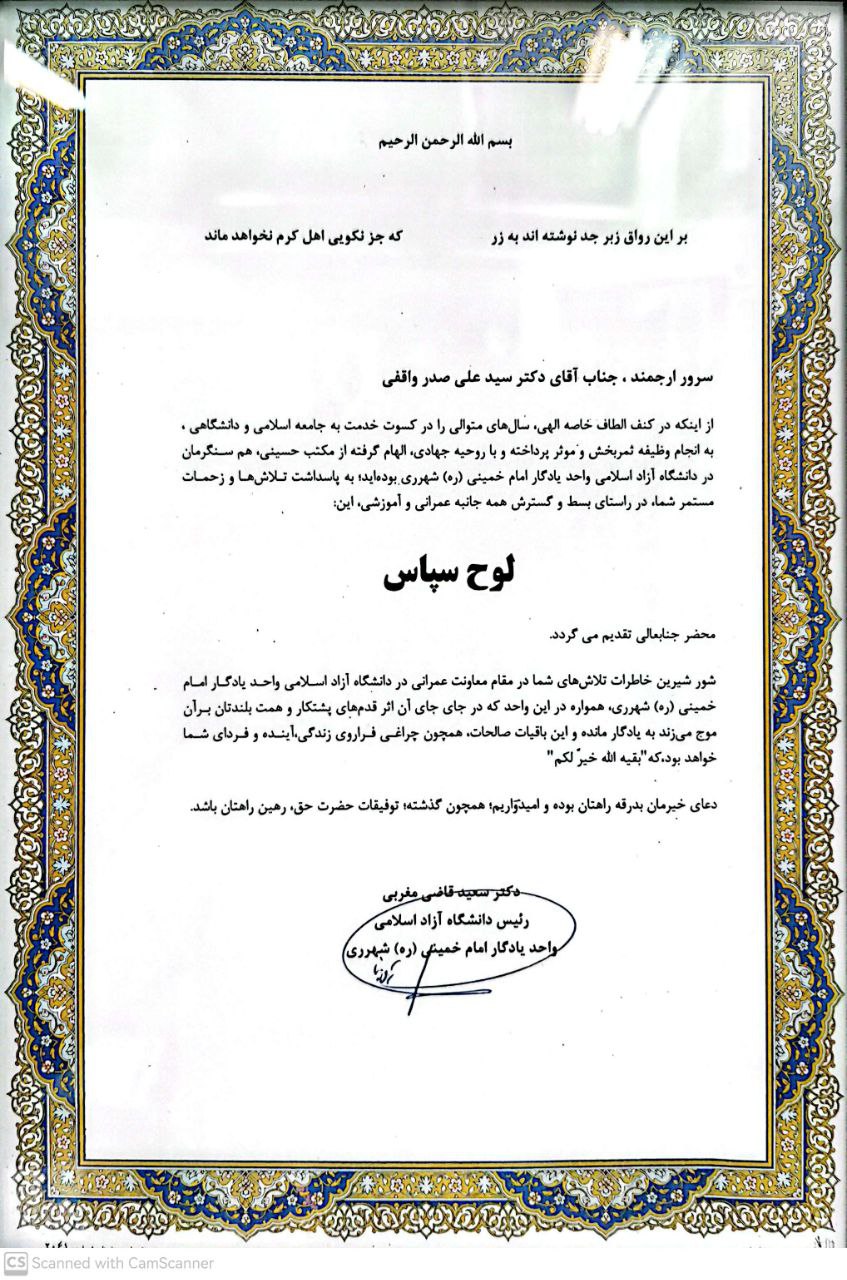 بسم الله الرحمن الرحیم
بر این رواق زبر جد نوشته اند به زر که جز نکویی اهل کرم نخواهد ماند
سرور ارجمند ، جناب آقای دکتر سید علی صدر واقفی
از اینکه در کنف الطاف خاصه الهی، سال‌های متوالی را در کسوت خدمت به جامعه اسلامی و دانشگاهی ،
به انجام وظیفه ثمربخش و موثر پرداخته و با روحیه جهادی، الهام گرفته از مکتب حسینی، هم سنگرمان
در دانشگاه آزاد اسلامی واحد یادگار امام خمینی (ره) شهرری بوده‌اید؛ به پاسداشت تلاش‌ها و زحمات
مستمر شما، در راستای بسط و گسترش همه جانبه عمرانی و آموزشی، این:
لوح سپاس
محضر جنابعالی تقدیم می گردد.
شور شیرین خاطرات تلاش‌های شما در مقام معاونت عمرانی در دانشگاه آزاد اسلامی واحد یادگار امام
خمینی (ره) شهرری، همواره در این واحد که در جای جای آن اثر قدم‌های پشتکار و همت بلندتان برآن
موج می‌زند به یادگار مانده و این باقیات صالحات، همچون چراغی فراروی زندگی،آینده و فردای شما
خواهد بود،که"بقیه الله خیرٌ لکم"
دعای خیرمان بدرقه راهتان بوده و امیدواریم؛ همچون گذشته؛ توفیقات حضرت حق، رهین راهتان باشد.
دکتر سعید قاضی مغربی
رئیس دانشگاه آزاد اسلامی
واحد یادگار امام خمینی (ره) شهرری
CS Scanned with CamScanner